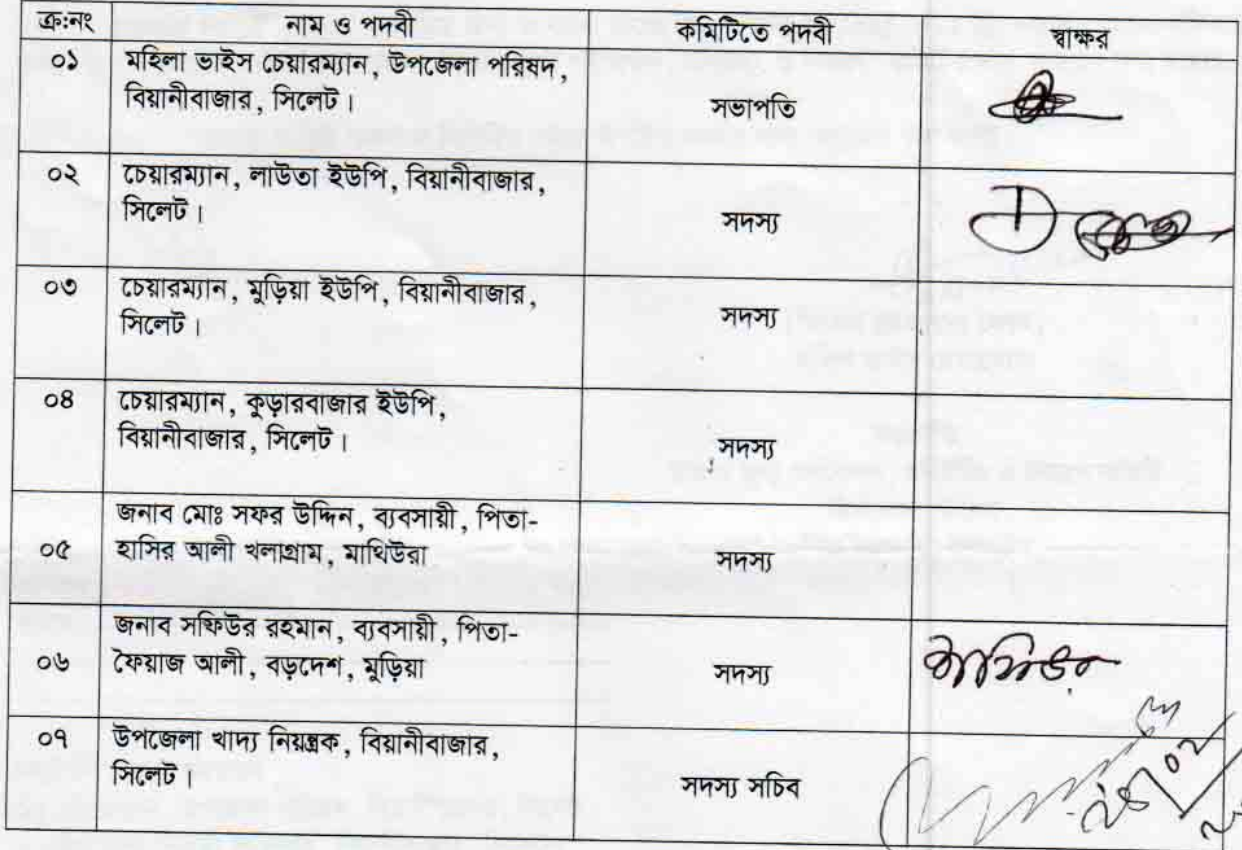 ক্র:নং নাম ও পদবী কমিটিতে পদবী স্বাক্ষর
০১ মহিলা ভাইস চেয়ারম্যান, উপজেলা পরিষদ,
বিয়ানীবাজার, সিলেট। সভাপতি
০২ চেয়ারম্যান, লাউতা ইউপি, বিয়ানীবাজার,
সিলেট। সদস্য
০৩ চেয়ারম্যান, মুড়িয়া ইউপি, বিয়ানীবাজার,
সিলেট। সদস্য
০৪ চেয়ারম্যান, কুড়ারবাজার ইউপি,
বিয়ানীবাজার, সিলেট। সদস্য
জনাব মোঃ সফর উদ্দিন, ব্যবসায়ী, পিতা-
০৫ হাসির আলী খলাগ্রাম, মাথিউরা সদস্য
জনাব সফিউর রহমান, ব্যবসায়ী, পিতা-
০৬ ফৈয়াজ আলী, বড়দেশ, মুড়িয়া সদস্য
০৭ উপজেলা খাদ্য নিয়ন্ত্রক, বিয়ানীবাজার,
সিলেট। সদস্য সচিব